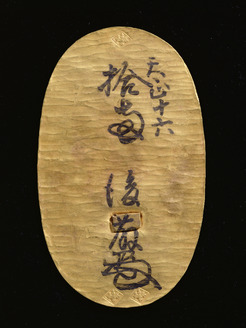 天正十六
拾両 後藤